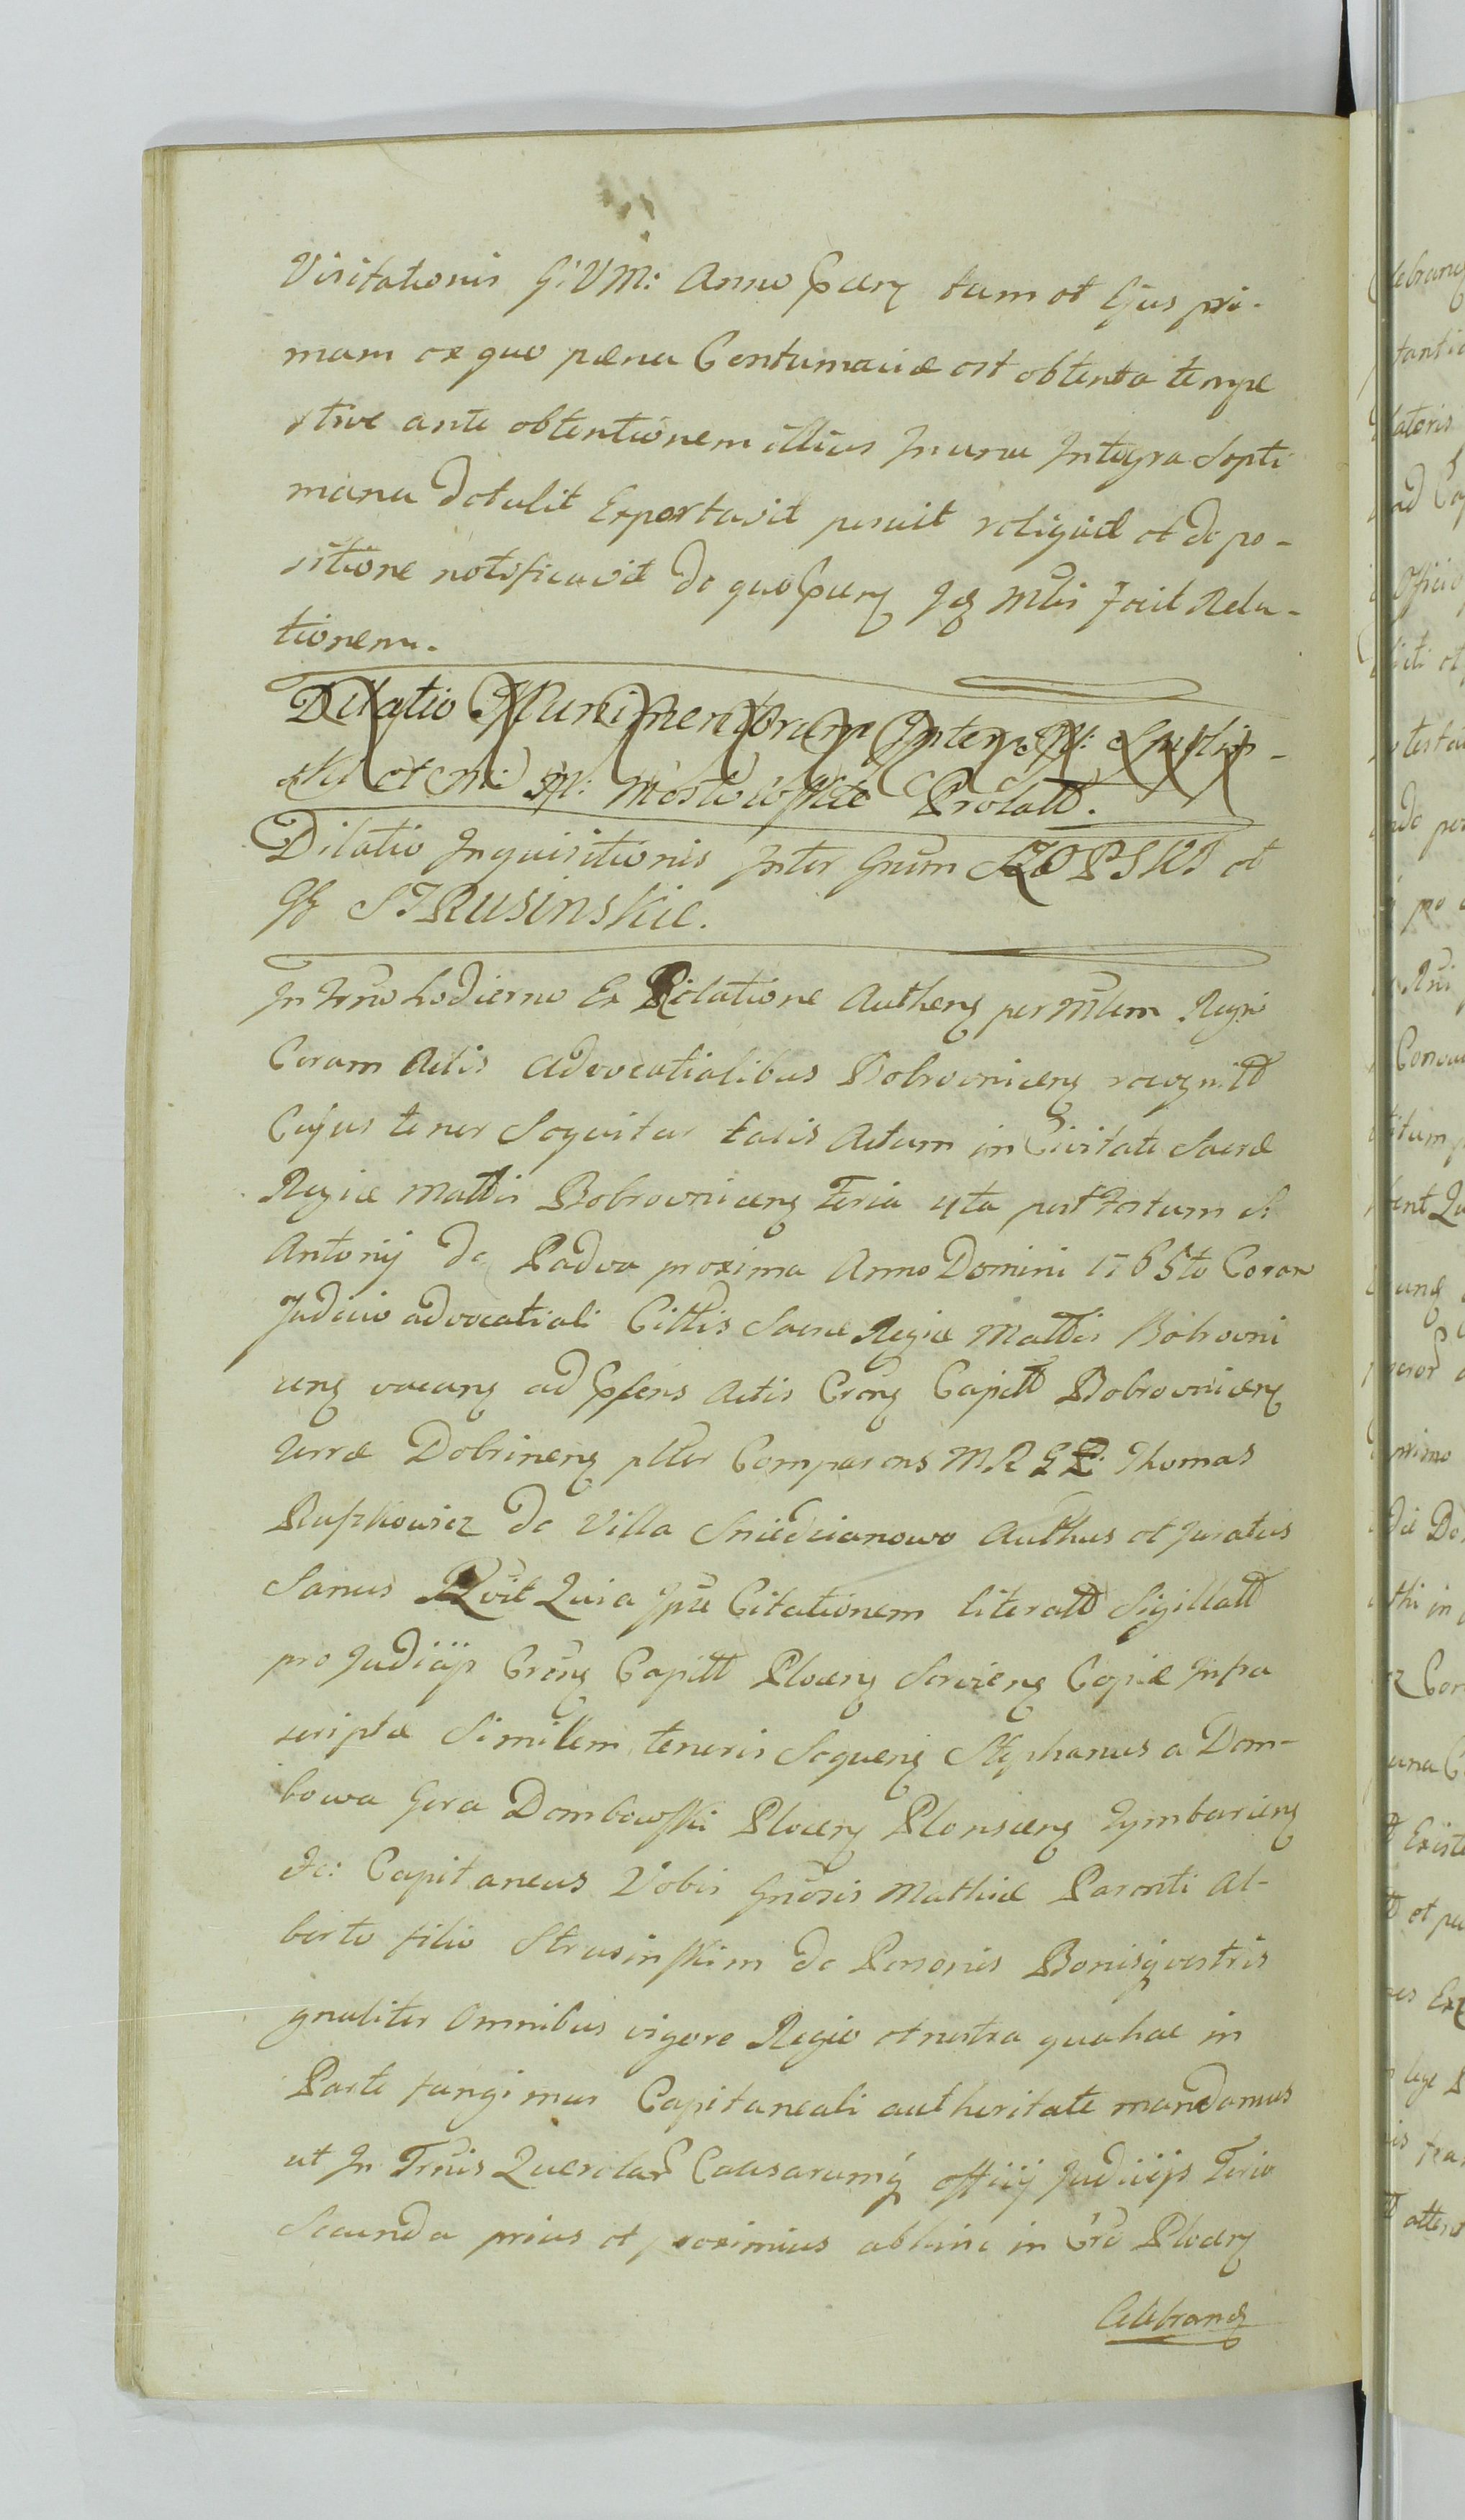 Visitationis G: V M: Anno Pnti tum et Ejus pri-
mam ex quo pæna Contumaciæ est obtenta tempe
stive ante obtentionem illius In una Integra Septi
mana detulit Exportavit posuit reliquit et depo-
sitione notificavit de quo Mtris fecit Rela-
tionem.
Dilatio Munimentorum Inter M:
ski et M: Mostowskie Prolatt.
Dilatio Inquisitionis Inter Gnum SZOPSKI et
GG STRUSINSKIE.
In Trno hodierno Ex Relatione Authenz per Mtlem Regni
Coram Actis Advocatialibus Bobrovnicenz recognitt
Cujus tenor Sequitur talis Actum in Civitate Sacræ
Regiæ Mattis Bobrovnicenz Feria 4ta post Festum S:
Antonij de Padva proxima Anno Domini 1765to Coram
Judicio advocatiali Cittis Sacræ Regiæ Mattis Bobrovni
cenz vocanz ad Ppsens Actis Crenz Capitt Bobrovnicenz
Terræ Dobrinenz plter Comparens M R G R: Thomas
Rupkowicz de Villa Sniedzianowo Authus et Juratus
Sanus Rvit Quia Ipse Citationem literatt Sigillatt
pro Judicijs Crenz Capitt Plocenz Servienz Copiæ Infra
scriptæ Similem tenoris Sequenz Stephanus a Dom-
bowa Gora Dombowski Plocenz Plonscenz Zymbarienz
&c: Capitaneus Vobis Gnosis Mathiæ Parenti Al-
berto filio Strusinskim de Personis Bonisq vestris
gnaliter Omnibus vigore Regio et nostra qua hac in
Parte fungimur Capitaneali autheritate mandamus
ut In Trnis Querelar Causarumq officij Judicijs Feria
Secunda prius et proximius abhinc in Cro Plocenz
Celebranz